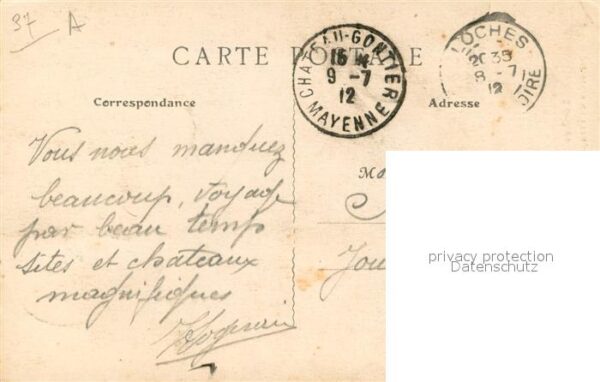 37 A
CARTE POSTALE
CHATEAU-GONTIER
15 *
9 -7
12
MAYENNE
LOCHES
20 35
8 -7
12
OIRE
Correspondance
Adresse
Vous nous manquez
beaucoup, voyage
par beau temps
sites et chateaux
magnifiques
M
Jou
privacy protection
Datenschutz